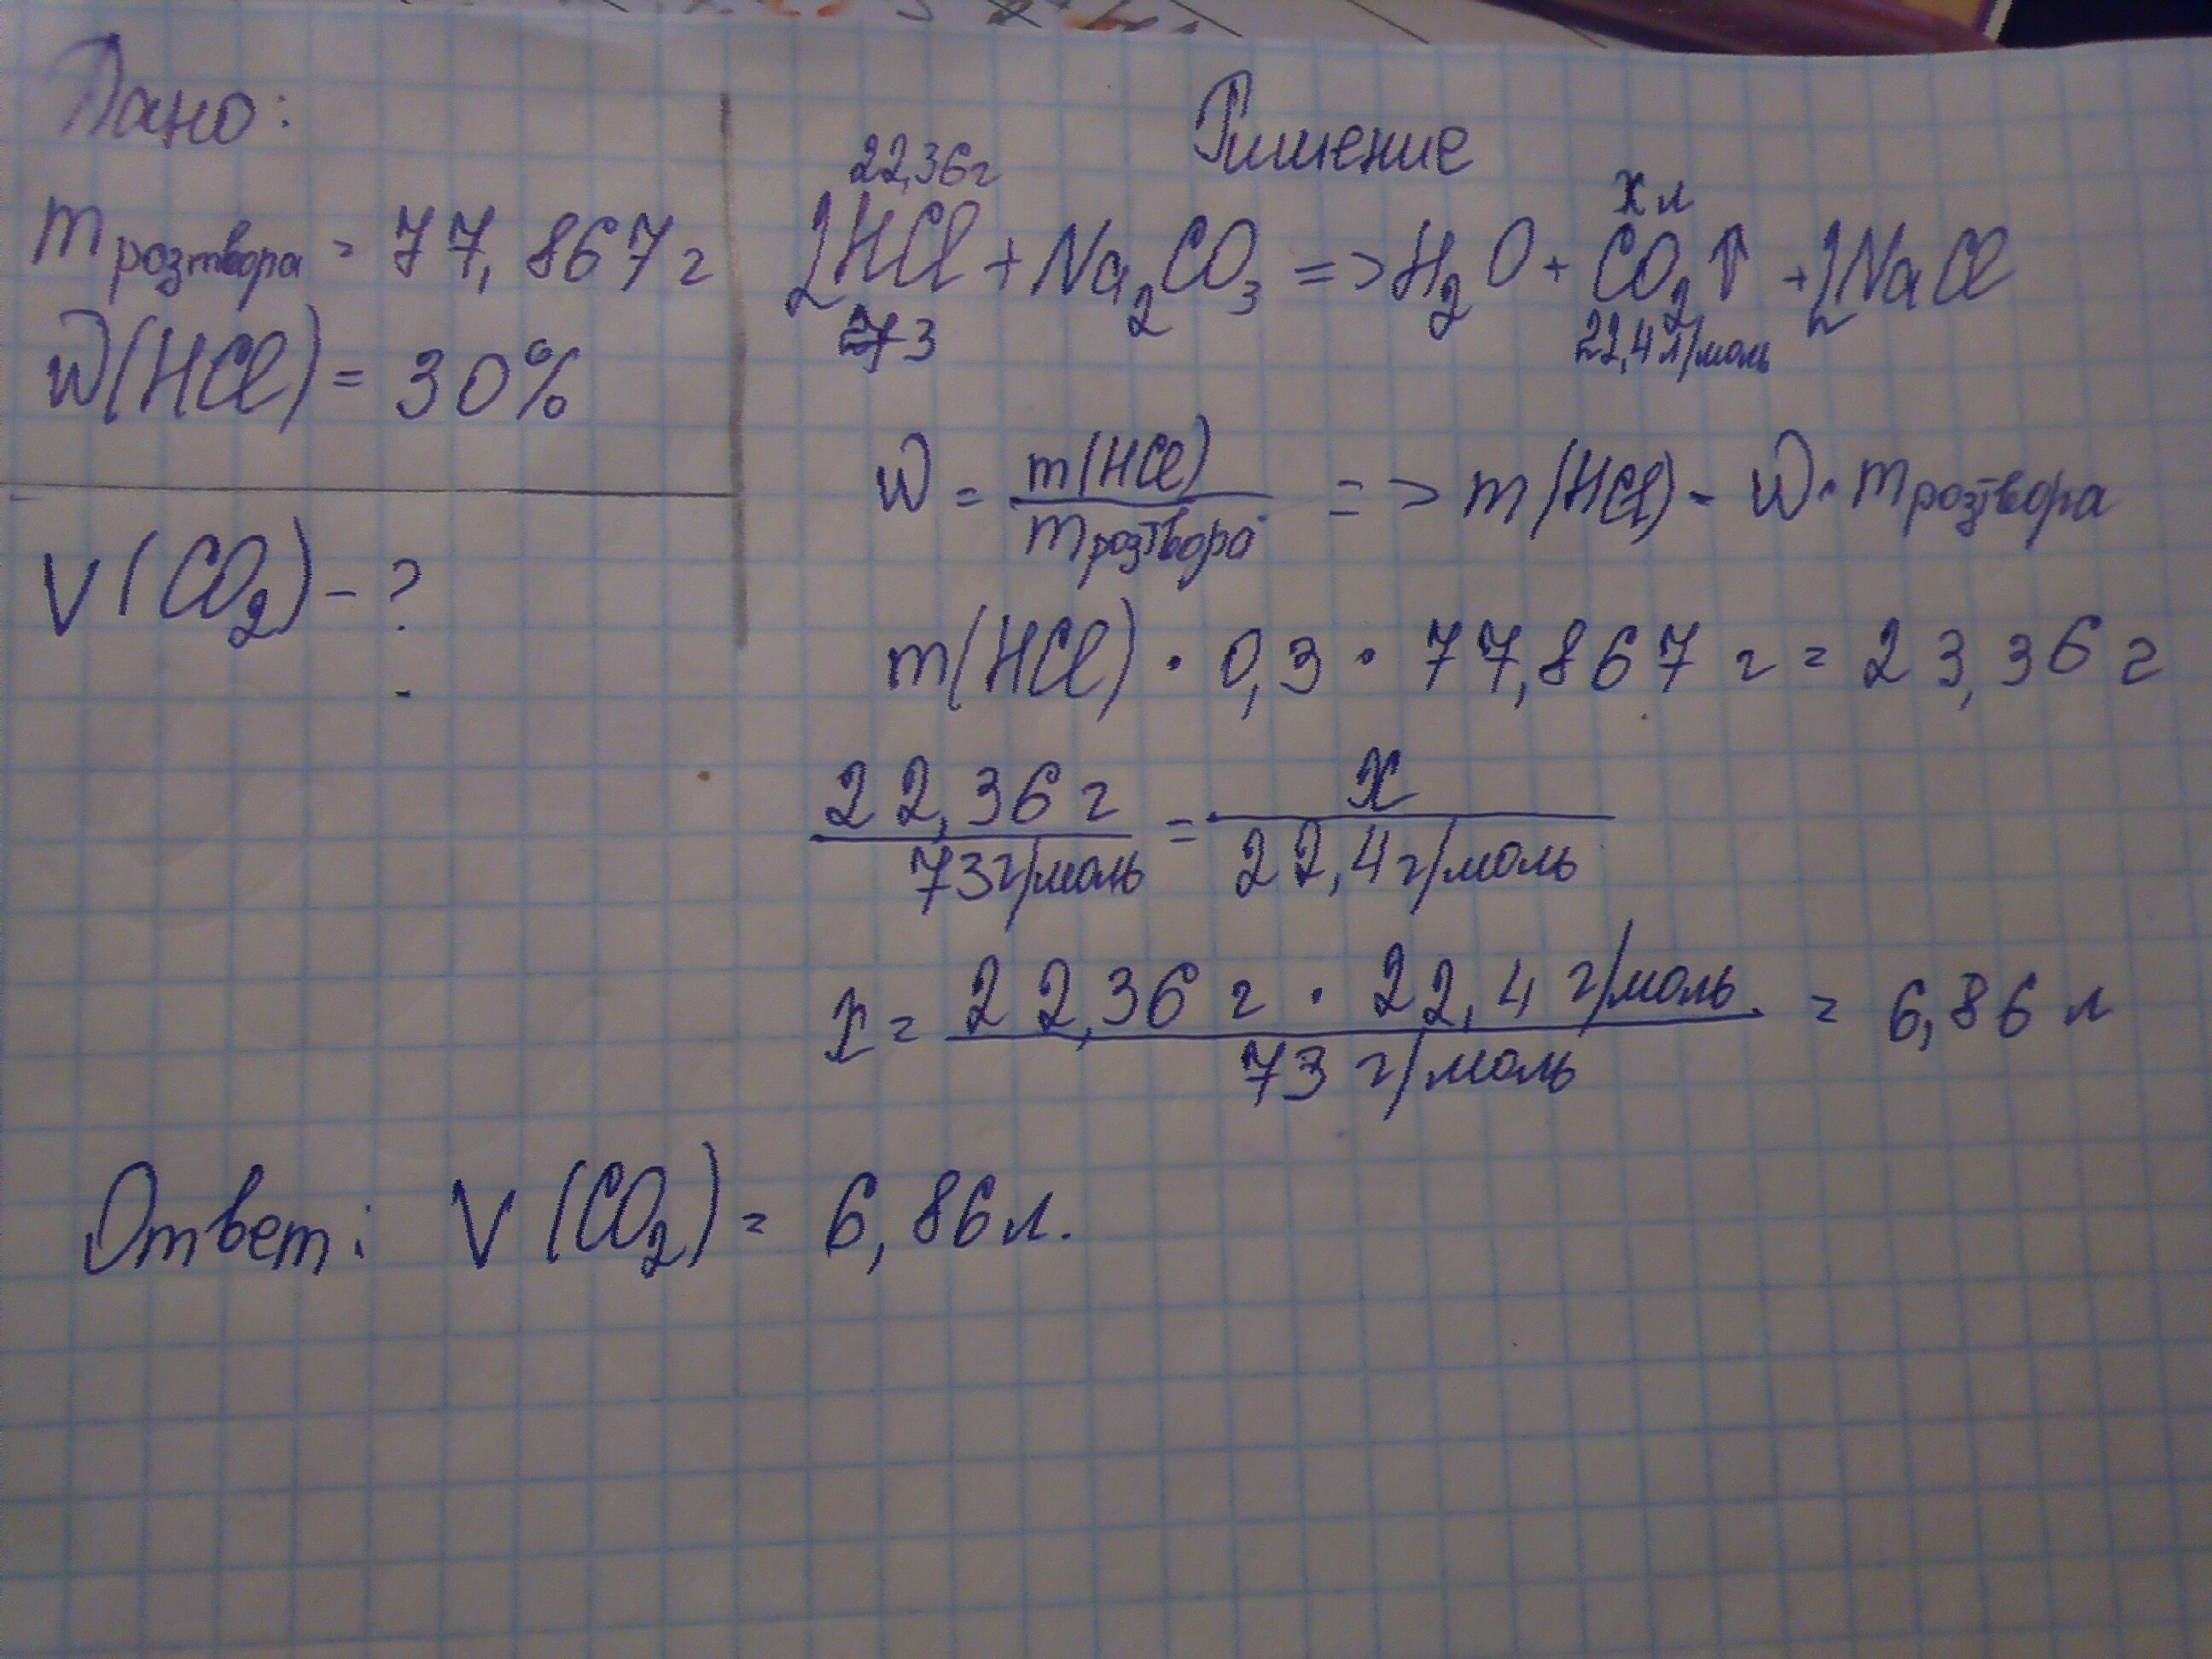 Дано:
m розтвора = 77,867 г
W(HCl) = 30%
V(CO2) - ?
Ришение
22,36 г
х л
2HCl + Na2CO3 => H2O + CO2↑ + 2NaCl
73
22,4 л/моль
W = m(HCl) / m розтвора => m(HCl) = W · m розтвора
m(HCl) · 0,3 · 77,867 г = 23,36 г
22,36 г / 73 г/моль = x / 22,4 г/моль
x = 22,36 г · 22,4 г/моль / 73 г/моль = 6,86 л
Ответ: V(CO2) = 6,86 л.